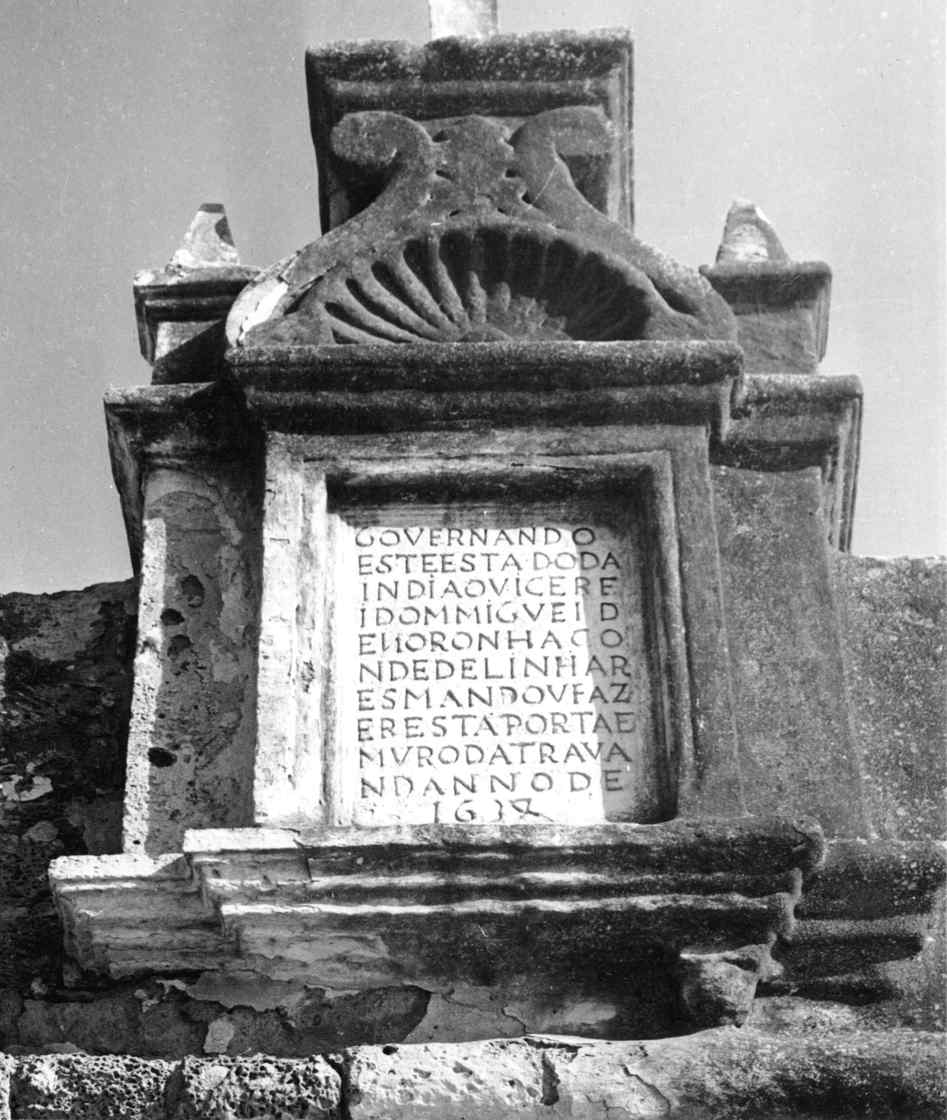 GOVERNANDO
ESTEESTADODA
INDIAOVICERE
IDOMMIGVEID
ENORONHACO
NDEDELINHAR
ESMANDOVFAZ
ERESTAPORTAE
MVRODATRAVA
NDANNODE